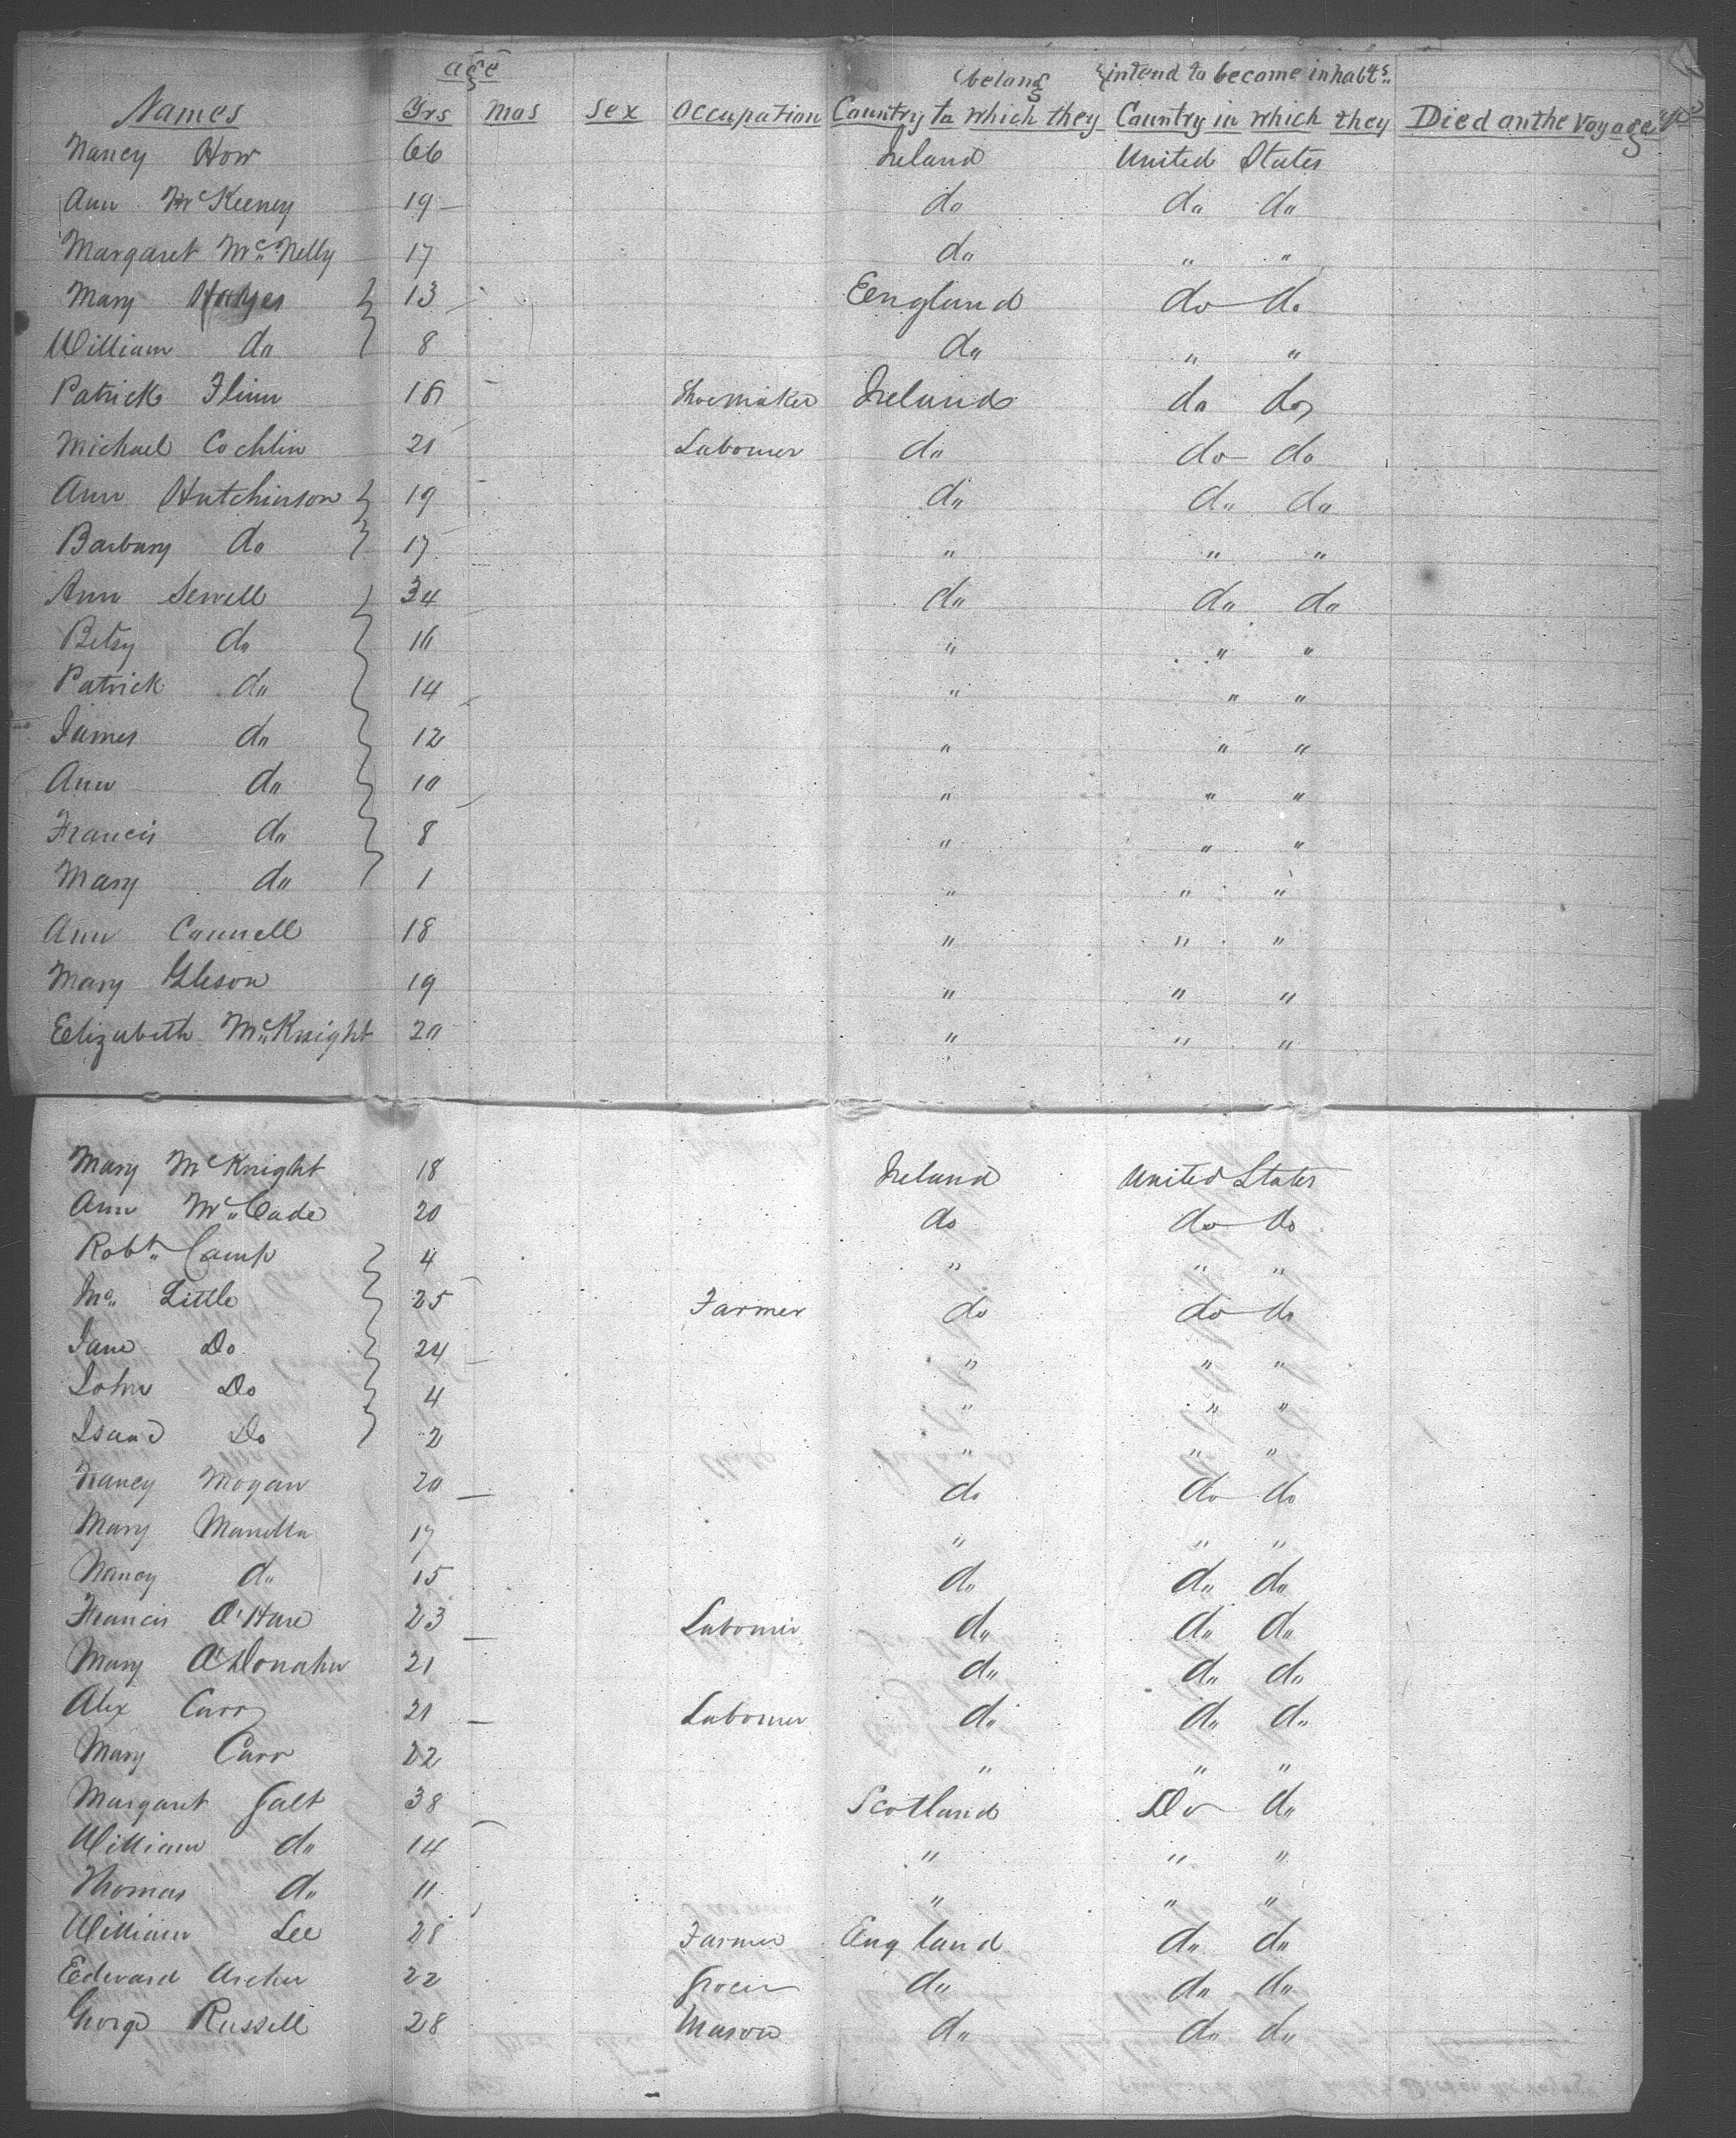 age (belong (intend to become inhabts.
Names Yrs Mos Sex Occupation Country to which they Country in which they Died on the Voyage
Nancy How 66 Ireland United States
Ann McKeeney 19 do do do
Margaret Mc Nelly 17 do " "
Mary Hayes 13 England do do
William do 8 do " "
Patrick Flinn 16 Shoemaker Ireland do do
Michael Cochlin 21 Labourer do do do
Ann Hutchinson 19 do do do
Barbary do 17 " " "
Ann Sewell 34 do do do
Betsy do 16 " " "
Patrick do 14 " " "
James do 12 " " "
Ann do 10 " " "
Francis do 8 " " "
Mary do 1 " " "
Ann Connell 18 " " "
Mary Gleson 19 " " "
Elizabeth McKnight 20 " " "
Mary McKnight 18 Ireland United States
Ann Mc Cade 20 do do do
Robt Camp 4 " " "
Little 25 Farmer do do do
Jane Do 24 " " "
John Do 4 " " "
Isaac Do 2 " " "
Nancy Mogan 20 do do do
Mary 17 " " "
Nancy do 15 do do do
Francis O'Hare 23 Labourer do do do
Mary O'Donahu 21 do do do
Alex Carr 21 Labourer do do do
Mary Carr 22 " " "
Margaret Galt 38 Scotland Do do
William do 14 " " "
Thomas do 11 " " "
William Lee 28 Farmer England do do
Edward Archer 22 Grocer do do do
George Russell 28 Mason do do do